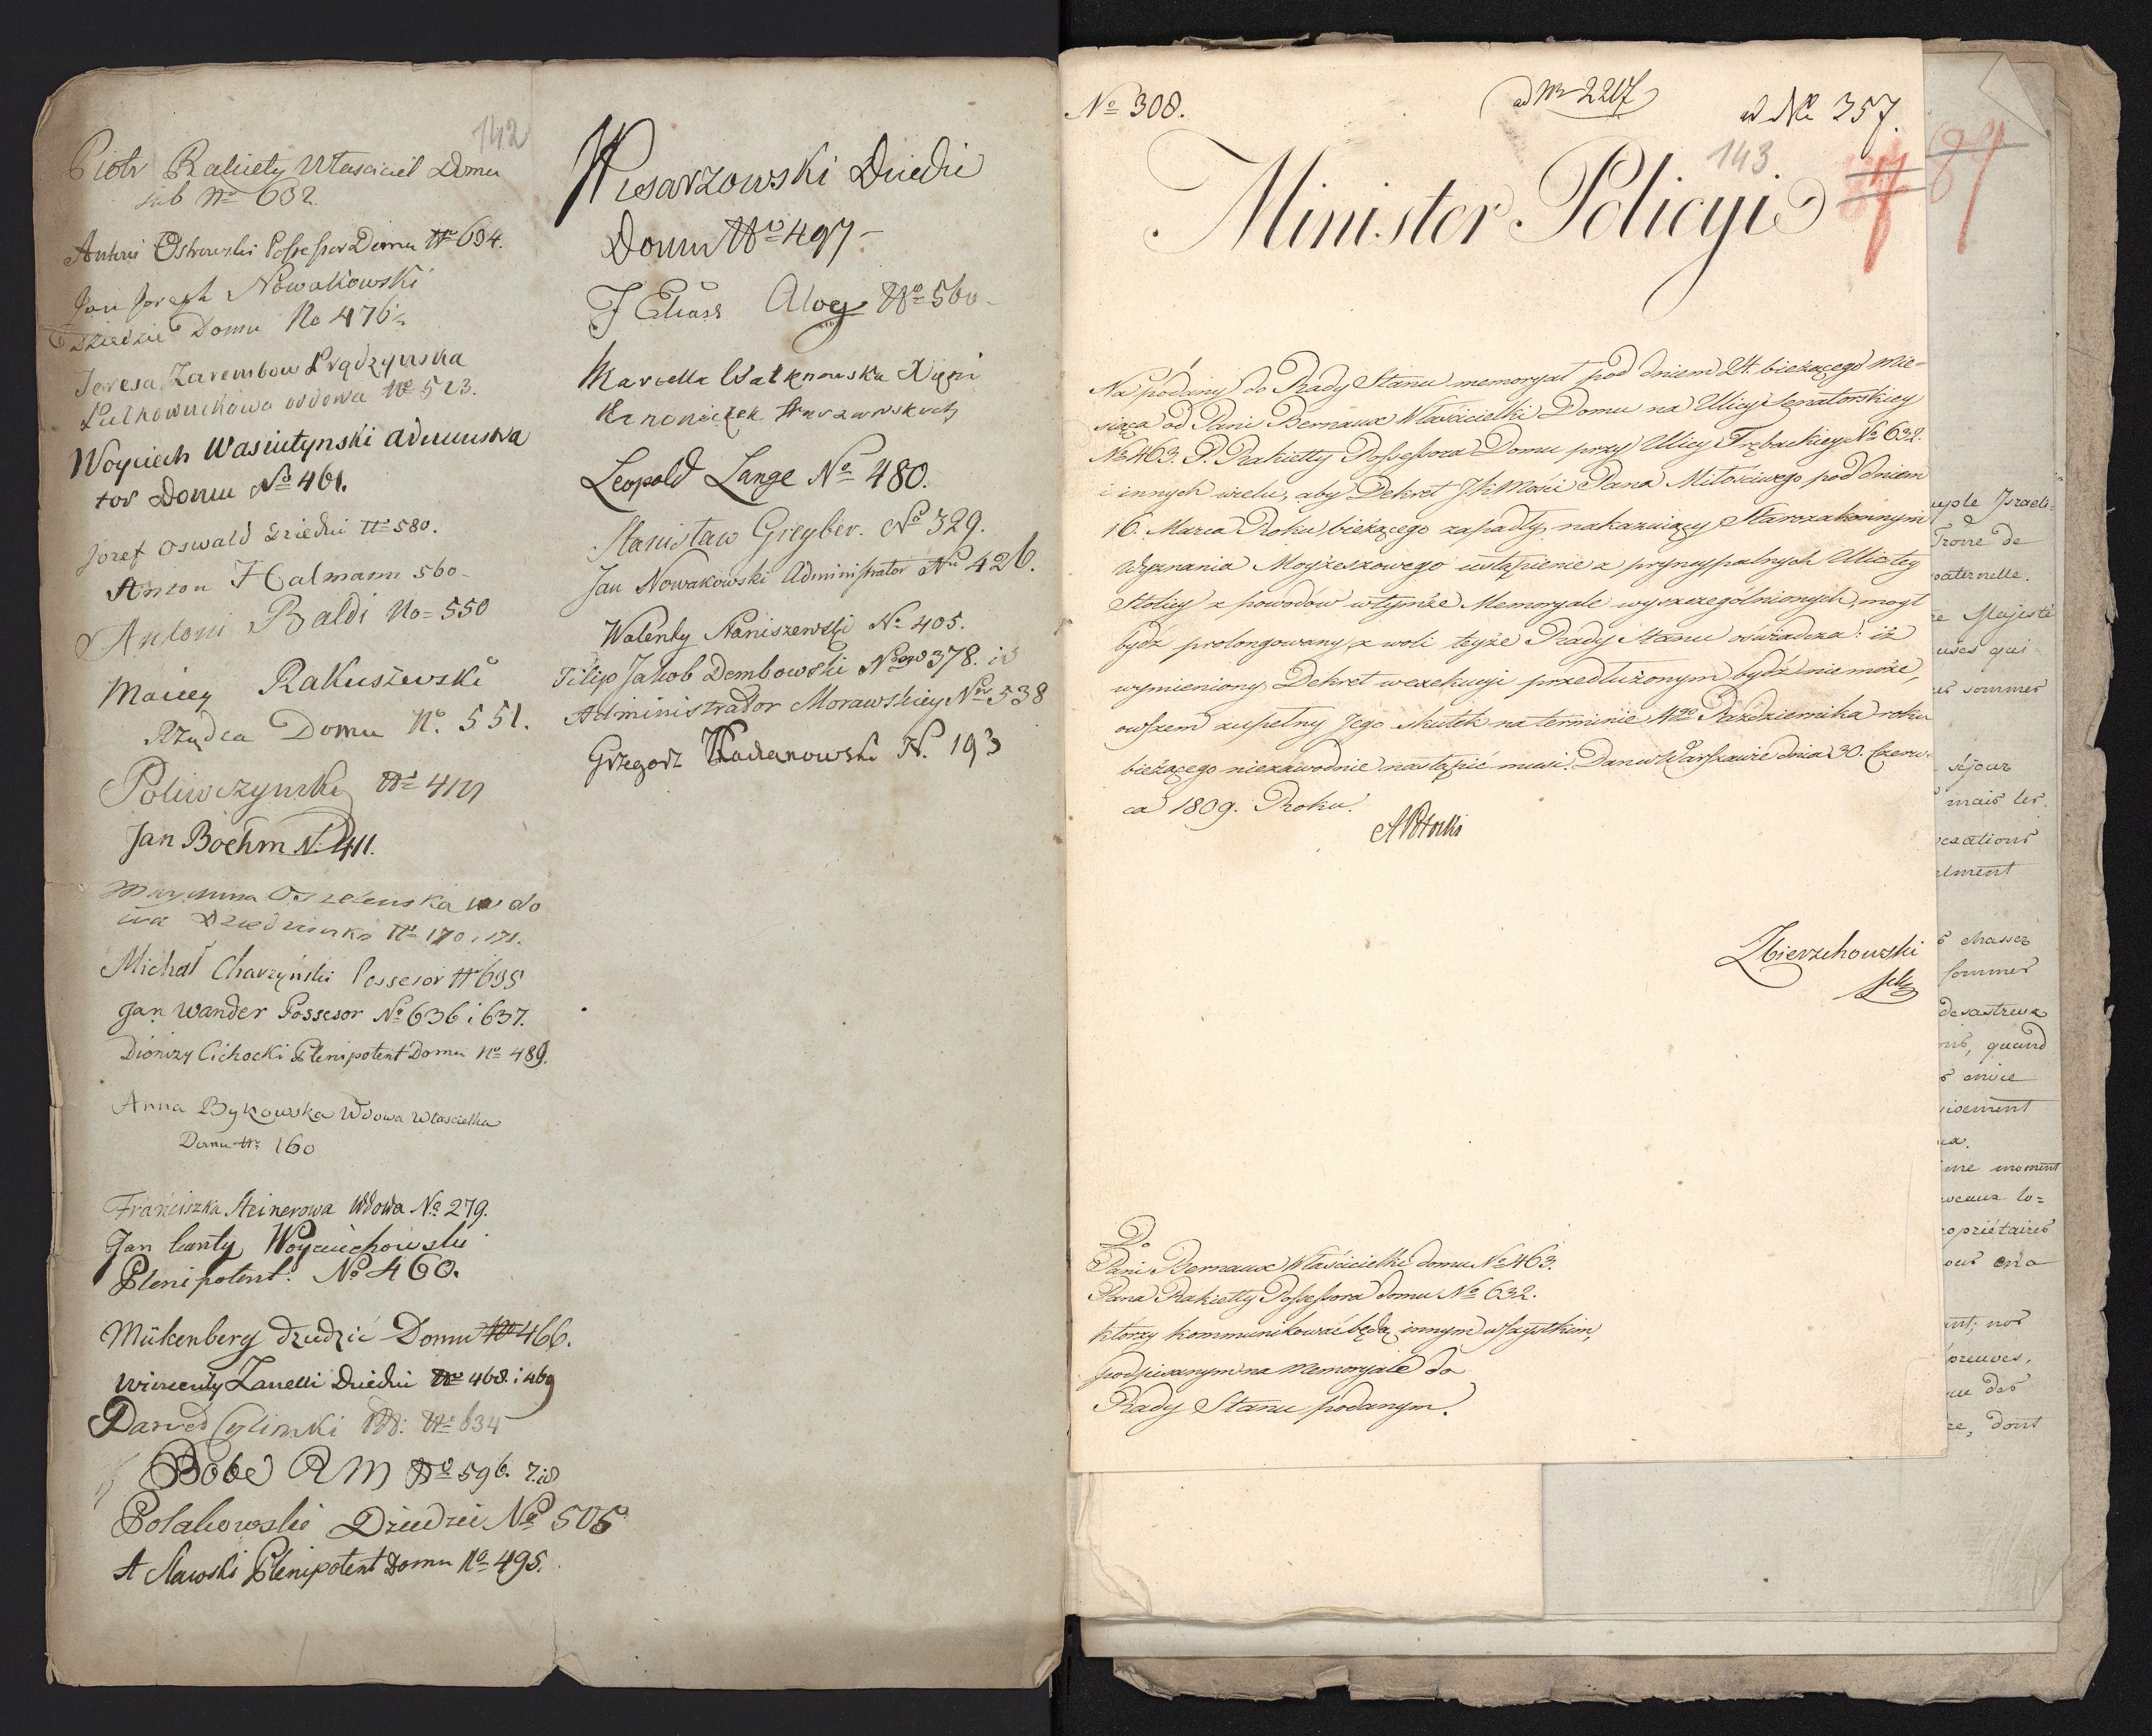 142
Piotr Rakiety Własciciel Domu
sub No 632.
Antoni Ostrowski Possessor Domu No 634.
Jan Joseph Nowakowski
Dziedzic Domu No 476
Teresa Zarembow Prądzynska
Pułkownikowa wdowa No 523.
Woyciech Wasiutynski Administra
tor Domu No 461.
Jozef Oswald Dziedzic No 580.
Anton Halmann 560
Antoni Baldi No = 550
Maciey Rakuszewski
Rządca Domu No. 551.
No 411
Jan Boehm N. 411.
wdo
wa Dziedziczka No 170 i 171.
Michał Charzyński Possesor No 695
Jan Wander Possesor No 636 i 637.
Dionizy Cichocki Plenipotent Domu No 489.
Anna Bykowska Wdowa Własciciellka
Domu No 160
Franciszka Steinerowa Wdowa No 279.
Jan Canty Woyciechowski
Plenipotent. No 460.
Mükenberg dziedzic Domu No 466.
Wincenty Zanelli Dziedzic No 468. i 469
No 634
Bobe R M No 596.
Polakowski Dziedzic No 505
A Sławski Plenipotent Domu No 495.
Pisarzowski Dziedzic
Domu No 497 -
J Eliasz Aloy No 560 -
Marcella Xięni
Kanoniczek Warszawskich
Leopold Lange No 480.
Stanisław Greyber. No 329.
Jan Nowakowski Administrator No 426.
Walenty Staniszewski No 405.
Filip Jakob Dembowski Nrego 378. i
Administrador Morawskiey Nr 538
Grzegorz N. 193
No 308.
ad Nr 2207
ad No 357.
143
87
87
Minister Policyi
Na podany do Rady Stanu memoryał pod dniem 24. bieżącego mie-
siąca od Pani Bernaux Właścicielki Domu na Ulicy Senatorskiey
No 463. P. Rakietty Possessora Domu przy Ulicy Trębackiey No 632.
i innych wielu, aby Dekret JKMości Pana Miłościwego pod dniem
16. Marca Roku bieżącego zapadły, nakazuiący Starozakonnym
Wyznania Moyżeszowego ustąpienie z pryncypalnych Ulic tey
Stolicy z powodów w tymże Memoryale wyszczególnionych, mogł
bydź prolongowany, z woli teyże Rady Stanu oświadcza: iż
wymieniony Dekret w exekucyi przedłużonym bydź nie może,
owszem zupełny Jego skutek na terminie 4go Października roku
bieżącego niezawodnie nastąpić musi. Dan w Warszawie dnia 30. Czerw-
ca 1809. Roku.
APotocki
Zbierzchowski
Do
Pani Bernaux Właścicielki domu No 463.
Pana Rakietty Possessora domu No 632.
którzy kommunikować będą innym wszystkim,
podpisanym na Memoryale do
Rady Stanu podanym.
uple Israeli=
Trone de
paternelle.
re Majesté
uses qui
us sommes
séjour
mais les
exations
lment
chasser
sommes
desastreux
ns, quand
envie
ivement
ua.
me moment
veaux lo=
opriétaires
ous en a
ant; nos
preuves,
eu des
ce, dont